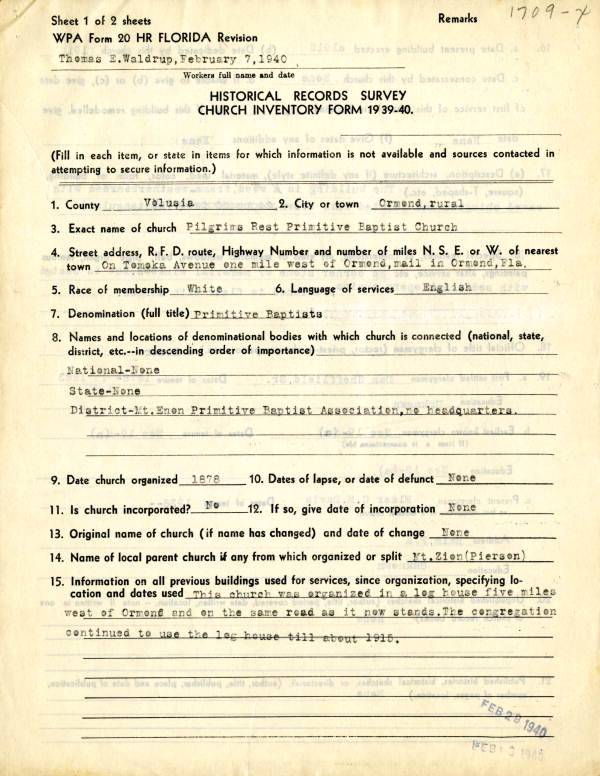 Sheet 1 of 2 sheets Remarks 1709-X
WPA Form 20 HR FLORIDA Revision
Thomas E.Waldrup,February 7,1940
Workers full name and date
HISTORICAL RECORDS SURVEY
CHURCH INVENTORY FORM 1939-40.
(Fill in each item, or state in items for which information is not available and sources contacted in
attempting to secure information.)
1. County Volusia 2. City or town Ormond,rural
3. Exact name of church Pilgrims Rest Primitive Baptist Church
4. Street address, R. F. D. route, Highway Number and number of miles N. S. E. or W. of nearest
town On Tomoka Avenue one mile west of Ormond,mail in Ormond,Fla.
5. Race of membership White 6. Language of services English
7. Denomination (full title) Primitive Baptists
8. Names and locations of denominational bodies with which church is connected (national, state,
district, etc.--in descending order of importance)
National-None
State-None
District-Mt.Enon Primitive Baptist Association,no headquarters.
9. Date church organized 1878 10. Dates of lapse, or date of defunct None
11. Is church incorporated? No 12. If so, give date of incorporation None
13. Original name of church (if name has changed) and date of change None
14. Name of local parent church if any from which organized or split Mt.Zion(Pierson)
15. Information on all previous buildings used for services, since organization, specifying lo-
cation and dates used This church was organized in a log house five miles
west of Ormond and on the same road as it now stands.The congregation
continued to use the log house till about 1915.
FEB 29 1940
FEB 1940